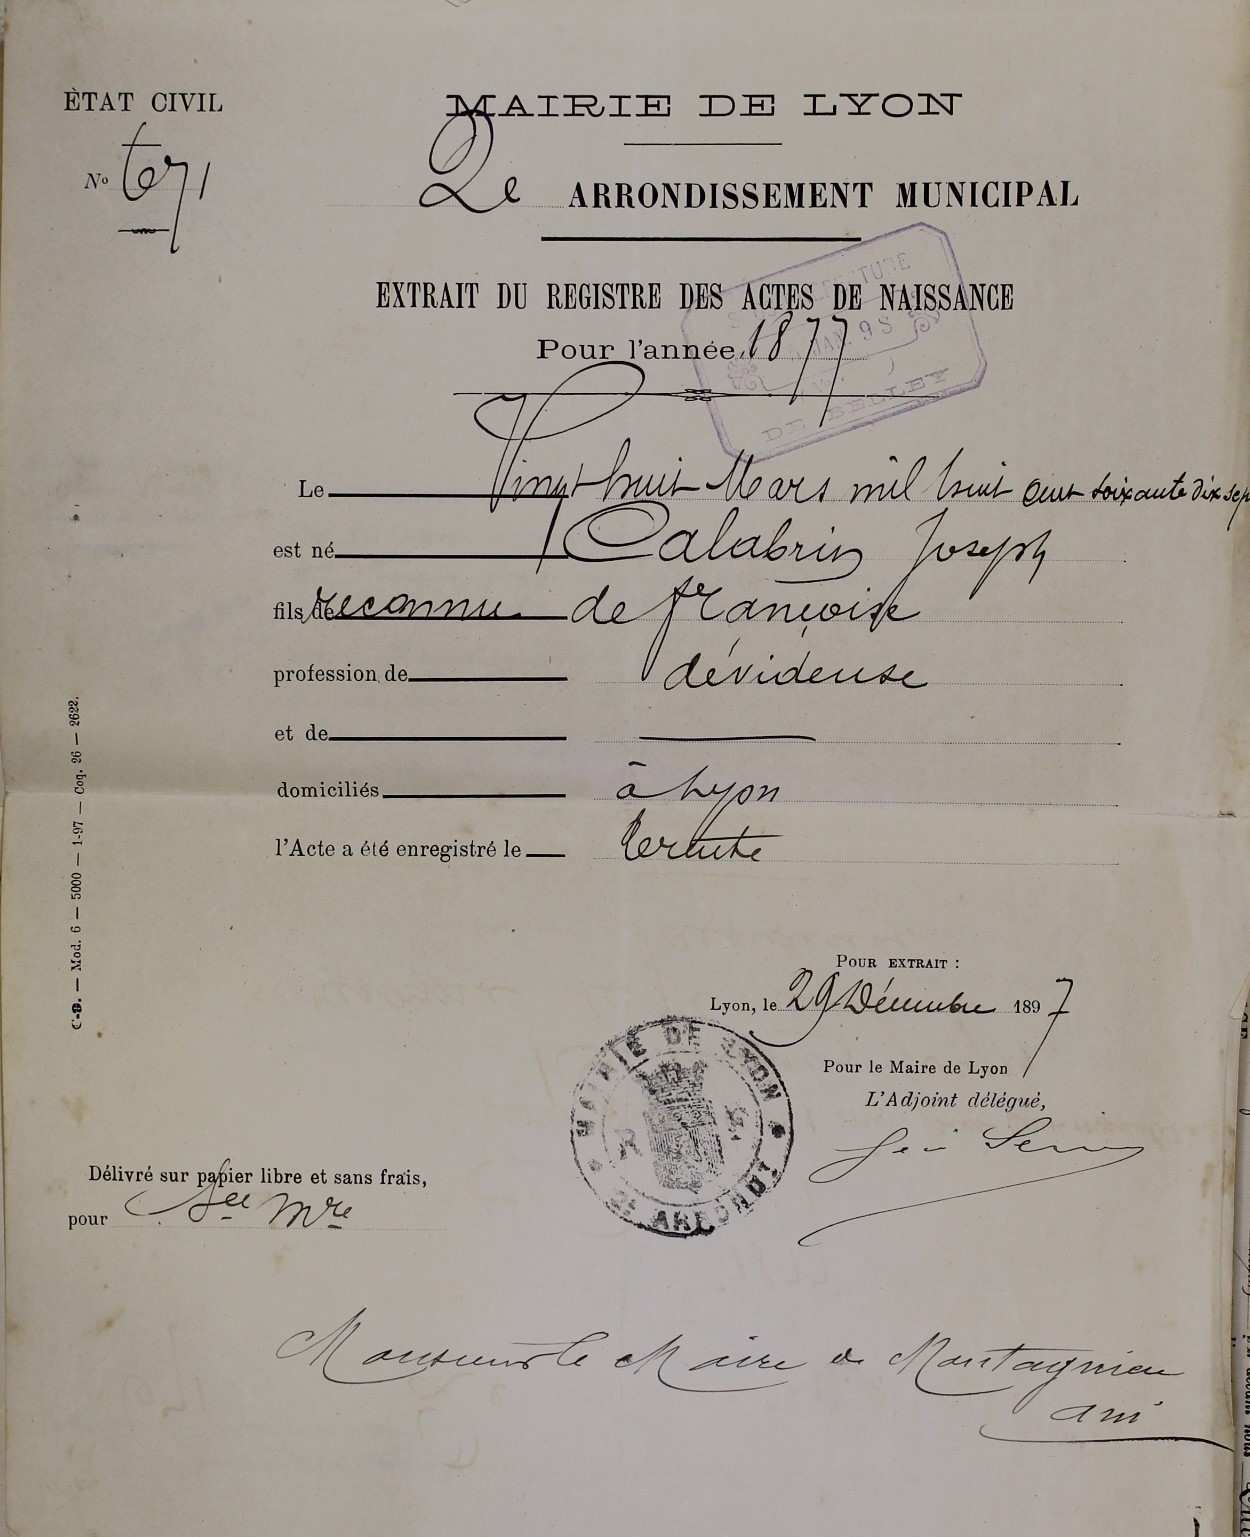 ÈTAT CIVIL
MAIRIE DE LYON
No 671
2e ARRONDISSEMENT MUNICIPAL
EXTRAIT DU REGISTRE DES ACTES DE NAISSANCE
Pour l'année 1877
JAN. 98
DE BELLEY
Le Vingt huit Mars mil huit cent soixante dix sep
est né Calabrin Joseph
fils de reconnu de françoise
profession de dévideuse
et de
domiciliés à Lyon
l'Acte a été enregistré le trente
C-D. — Mod. 6 — 5000 — 1-97 — Coq. 26 — 2622.
POUR EXTRAIT :
Lyon, le 29 Décembre 1897
Pour le Maire de Lyon
L'Adjoint délégué,
MAIRIE DE LYON
2e ARRONDt
Délivré sur papier libre et sans frais,
pour Sce Mre
Monsieur le Maire de Montagnieu
Ain